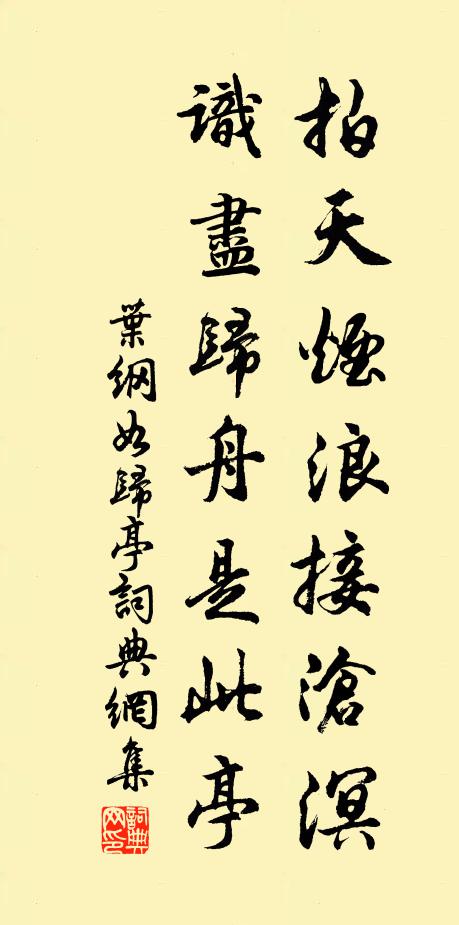 拍天煙浪接滄溟
識盡歸舟是此亭
葉綱如歸亭詞典網集
詞典网印